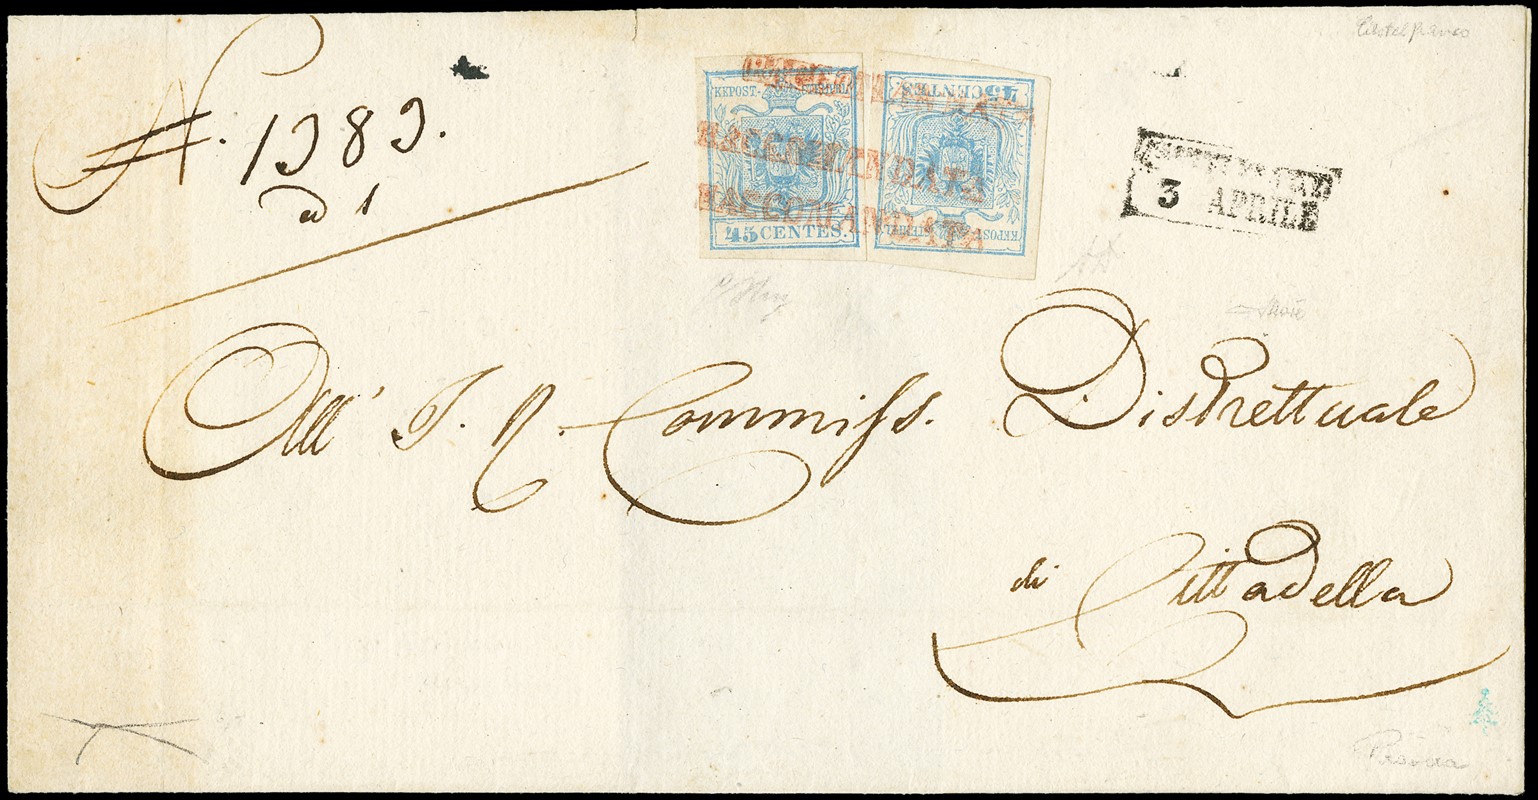 Castelfranco
N. 1383.
ad 1
KKPOST-STEMPEL
45 CENTES.
KKPOST-STEMPEL
45 CENTES.
RACCOMANDATA
RACCOMANDATA
RACCOMANDATA
3 APRILE
All' I. R. Commiss. Distrettuale
di Cittadella